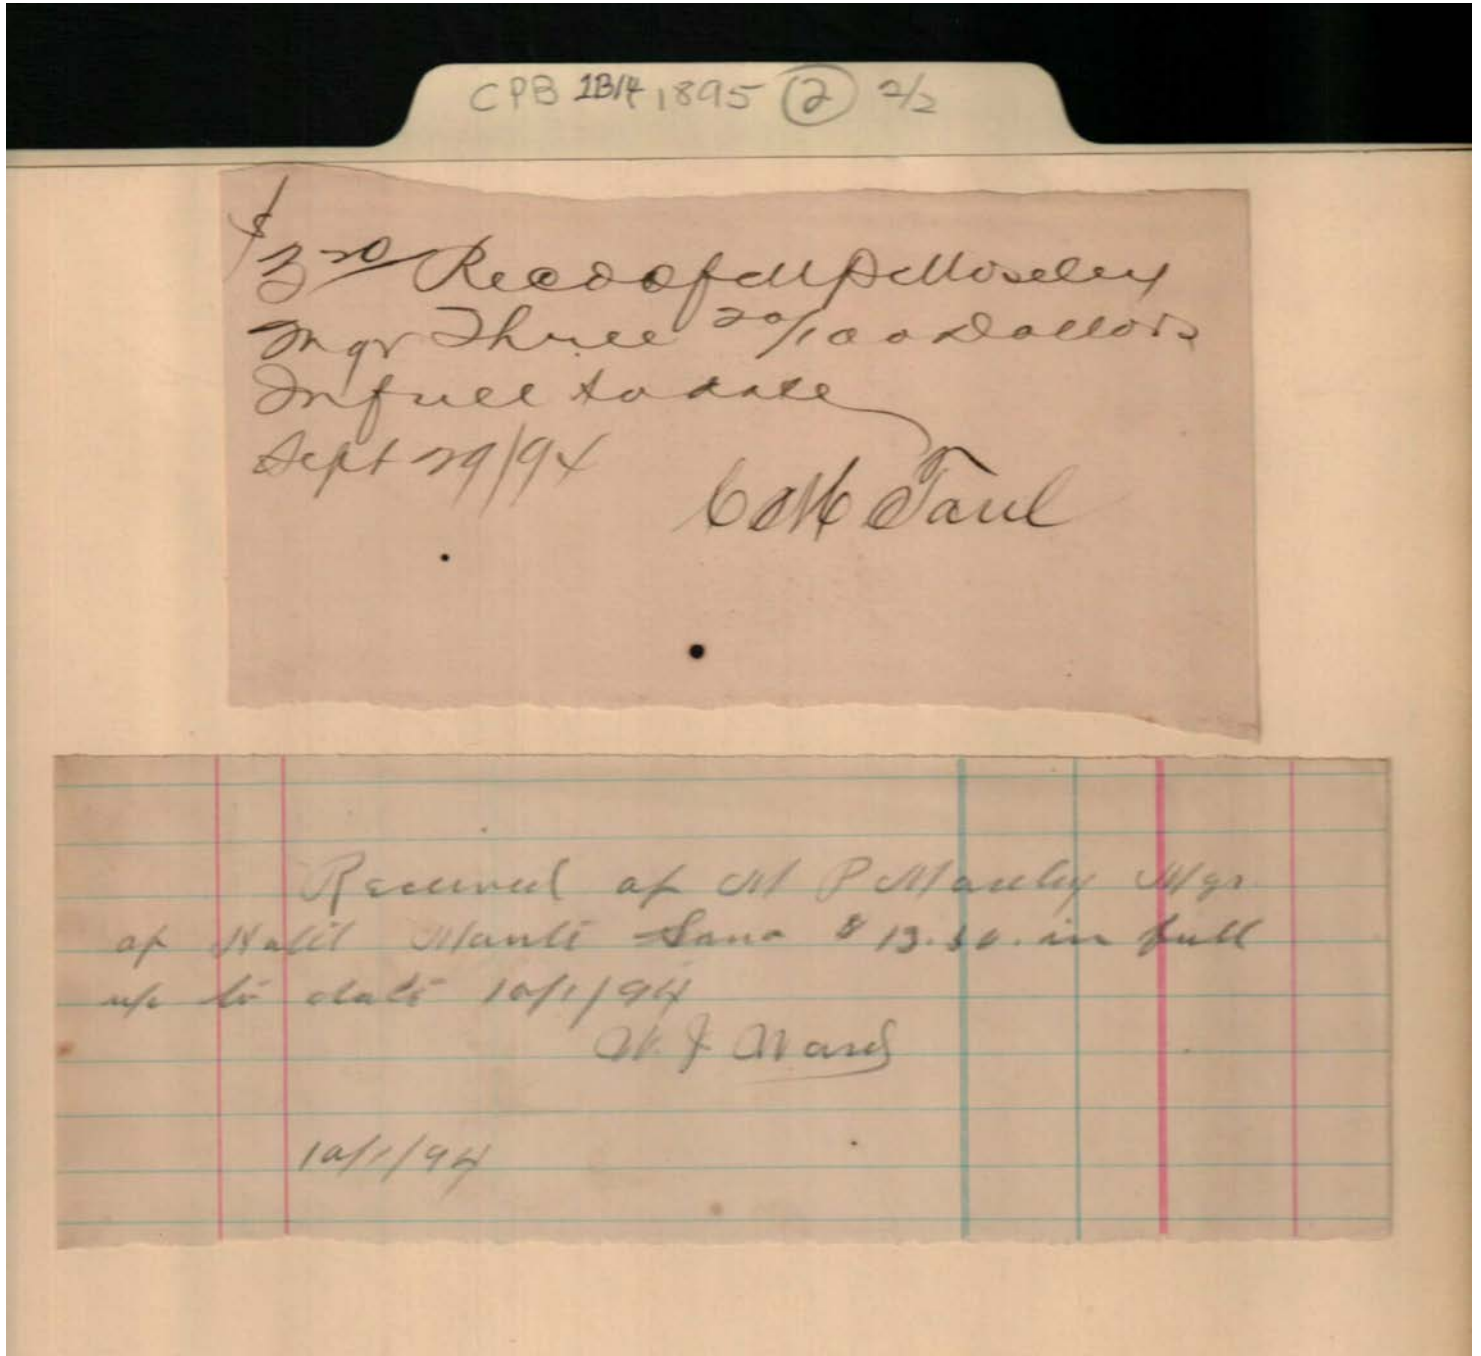 CPB 1B14 1895 (2) 2/2
$3 20 Recd of M P Moseley
Mgr Three 20/100 Dollors
In full to date
Sept 29/94
C H Taul
Received of M P Moseley Mgr
of $13.50. in full
up to date 10/1/94
W. J Ward
10/1/94